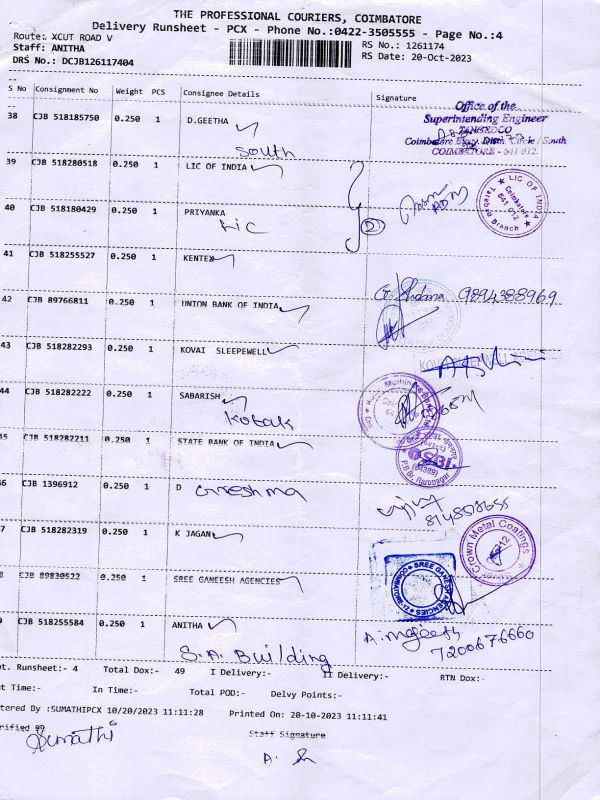 THE PROFESSIONAL COURIERS, COIMBATORE
Delivery Runsheet - PCX - Phone No.:0422-3505555 - Page No.:4
Route: XCUT ROAD V
RS No.: 1261174
Staff: ANITHA
RS Date: 20-Oct-2023
DRS No.: DCJB126117404
S No Consignment No Weight PCS Consignee Details Signature
Office of the
Superintending Engineer
TANGEDCO
Coimbatore Elecy. Distn. Circle / South
COIMBATORE - 641 012.
38 CJB 518185750 0.250 1 D.GEETHA
South
39 CJB 518280518 0.250 1 LIC OF INDIA
LIC OF INDIA
Coimbatore
641 012
Tatabad Branch
40 CJB 518180429 0.250 1 PRIYANKA
Lic
41 CJB 518255527 0.250 1 KENTEX
9894388969
42 CJB 89766811 0.250 1 UNION BANK OF INDIA
43 CJB 518282293 0.250 1 KOVAI SLEEPWELL
44 CJB 518282222 0.250 1 SABARISH
Kotak
45 CJB 518282211 0.250 1 STATE BANK OF INDIA
SBI
46 CJB 1396912 0.250 1 D
Greeshma
47 CJB 518282319 0.250 1 K JAGAN
Crown Metal Coatings
48 CJB 89830522 0.250 1 SREE GANEESH AGENCIES
SREE GANEESH AGENCIES
COIMBATORE-12
49 CJB 518255584 0.250 1 ANITHA
S.A. Building
7200676660
pt. Runsheet:- 4 Total Dox:- 49 I Delivery:- II Delivery:- RTN Dox:-
ut Time:- In Time:- Total POD:- Delvy Points:-
tered By :SUMATHIPCX 10/20/2023 11:11:28 Printed On: 20-10-2023 11:11:41
rified By
Staff Signature
Sumathi